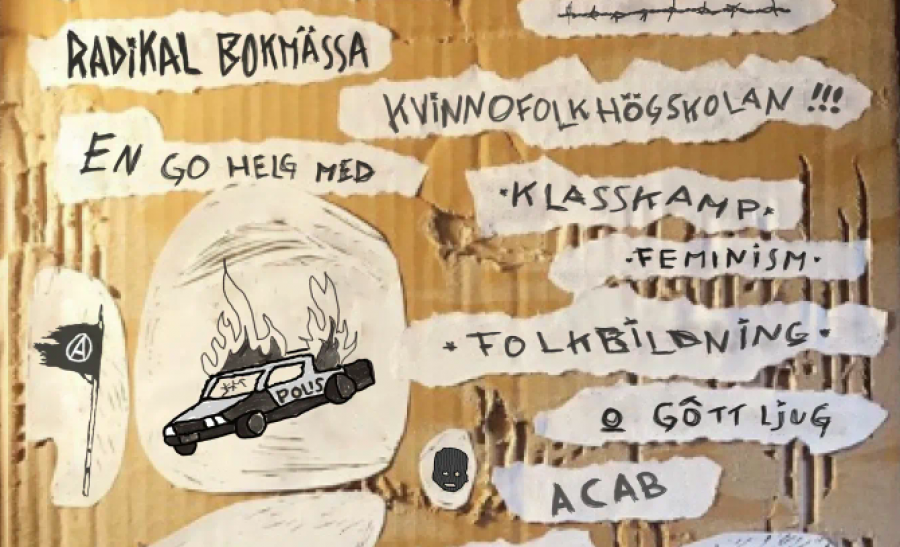 RADIKAL BOKMÄSSA
KVINNOFOLKHÖGSKOLAN !!!
EN GO HELG MED
·KLASSKAMP·
·FEMINISM·
·FOLKBILDNING·
O GÔTT LJUG
ACAB
A
POLIS